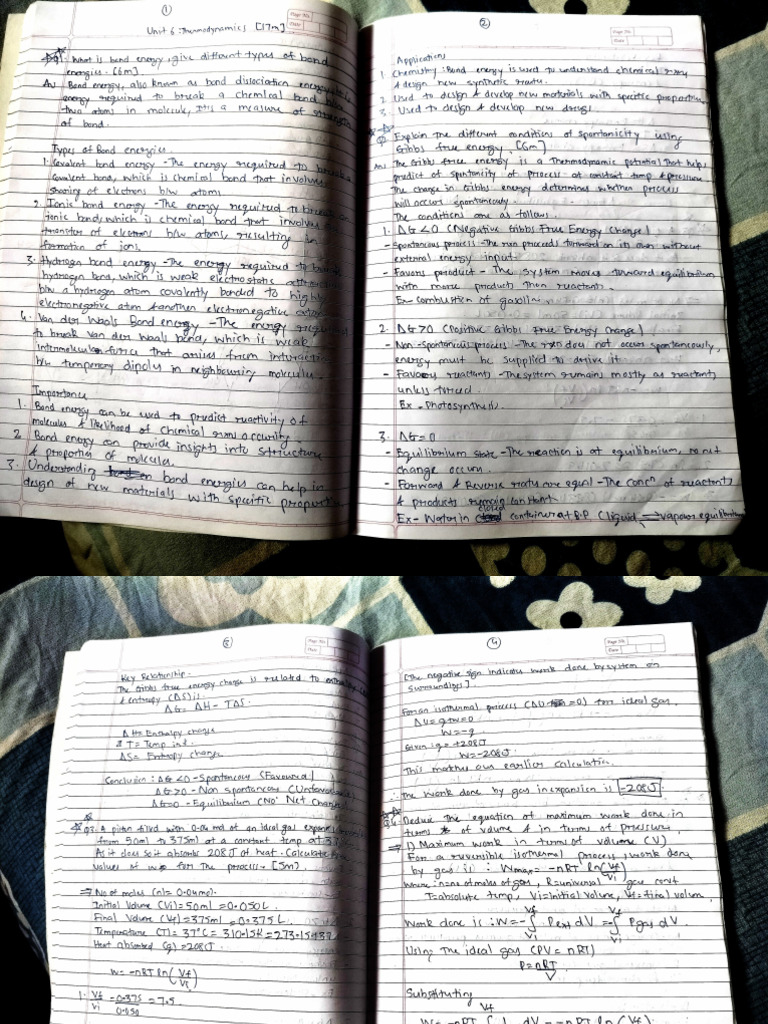 1
Unit 6 - Thermodynamics [17m]
Page No.
Date
Q1. What is bond energy, give different types of bond
energies. [6m].
Ans Bond energy, also known as bond dissociation energy
energy required to break a chemical bond b/w
two atoms in molecule, It is a measure of strength
of bond.
Types of Bond energies.
1. Covalent bond energy - The energy required to break
covalent bond, which is chemical bond that involves
sharing of electrons b/w atoms
2. Ionic bond energy - The energy required to break
ionic bond, which is chemical bond that involves
transfer of electrons b/w atoms, resulting in
formation of ions.
3. Hydrogen bond energy - The energy required to
hydrogen bond, which is weak electrostatic
b/w a hydrogen atom covalently bonded to highly
electronegative atom & another electronegative atom
4. Van der Waals Bond energy - The energy required
to break van der waals bond, which is weak
intermolecular force that arises from interaction
b/w temporary dipoles in neighbouring molecules.
Importance
1. Bond energy can be used to predict reactivity of
molecules & likelihood of chemical rxns occuring.
2. Bond energy can provide insights into structure
& properties of molecules.
3. Understanding bond energies can help in
design of new materials with specific properties
2
Page No.
Date
Applications
1. Chemistry: Bond energy is used to understand chemical rxns
& design new synthetic routes.
2. Used to design & develop new materials with specific properties
3. Used to design & develop new drugs.
Q Explain the different conditions of spontanicity using
Gibbs free energy [6m]
Ans The Gibbs free energy is a Thermodynamic potential that helps
predict of spontanity of process at constant temp & pressure.
The change in Gibbs energy determines whether process
will occur spontaneously.
The conditions are as follows.
1. ΔG<0 (Negative Gibbs Free Energy Change)
- Spontaneous process - The rxn proceeds forward on its own without
external energy input.
- Favors product - The system moves toward equilibrium
with more products than reactants.
Ex - Combustion of gasoline
2. ΔG>0 (Positive Gibbs Free Energy Change)
- Non-spontaneous process - The rxn does not occur spontaneously,
energy must be supplied to drive it
- Favors reactants - The system remains mostly as reactants
unless forced.
Ex - Photosynthesis.
3. ΔG=0
- Equilibrium state - The reaction is at equilibrium, no net
change occurs.
- Forward & Reverse rates are equal - The concn of reactants
& products remain constant
Ex - Water in closed container at B.P (liquid ⇌ vapour equilibrium
3
Page No.
Date
Key Relationship.
The Gibbs free energy change is related to enthalpy
& entropy (ΔS) is
ΔG = ΔH - TΔS.
ΔH = Enthalpy change
T = Temp in
ΔS = Entropy change
Conclusion: ΔG<0 - Spontaneous (Favoured)
ΔG>0 - Non spontaneous (Unfavoured
ΔG=0 - Equilibrium (No Net Change
Q3. A piston filled with 0.04 mol of an ideal gas expands
from 50ml to 375ml at a constant temp of 37
As it does so it absorbs 208J of heat. Calculate
values of w for the process - [5m].
⇒ No of moles (n) = 0.04 mol.
Initial Volume (Vi) = 50ml = 0.050L
Final Volume (Vf) = 375ml = 0.375L
Temperature (T) = 37°C = 310.15K = 273.15+37
Heat absorbed (q) = 208J.
W = -nRT ln(Vf/Vi)
1. Vf/Vi = 0.375/0.050 = 7.5
4
Page No.
Date
[The negative sign indicates work done by system on
surroundings].
For an isothermal process (ΔU = 0) for ideal gas.
ΔU = q+w = 0
W = -q
Given: q = +208J
W = -208J.
This matches our earlier calculation.
∴ The work done by gas in expansion is -208J
Q4. Deduce the equation of maximum work done in
terms of volume & in terms of pressure,
⇒ 1) Maximum work in terms of volume (V)
For a reversible isothermal process, work done
by gas is: Wmax = -nRT ln(Vf/Vi)
Where: n = no of moles of gas, R = universal gas const
T = absolute temp, Vi = initial volume, Vf = final volume.
Work done is: W = -∫ Vf Vi Pext dV = -∫ Vf Vi Pgas dV.
Using the ideal gas (PV = nRT)
P = nRT/V
Substituting
W = -nRT ∫ Vf dV = -nRT ln (Vf).